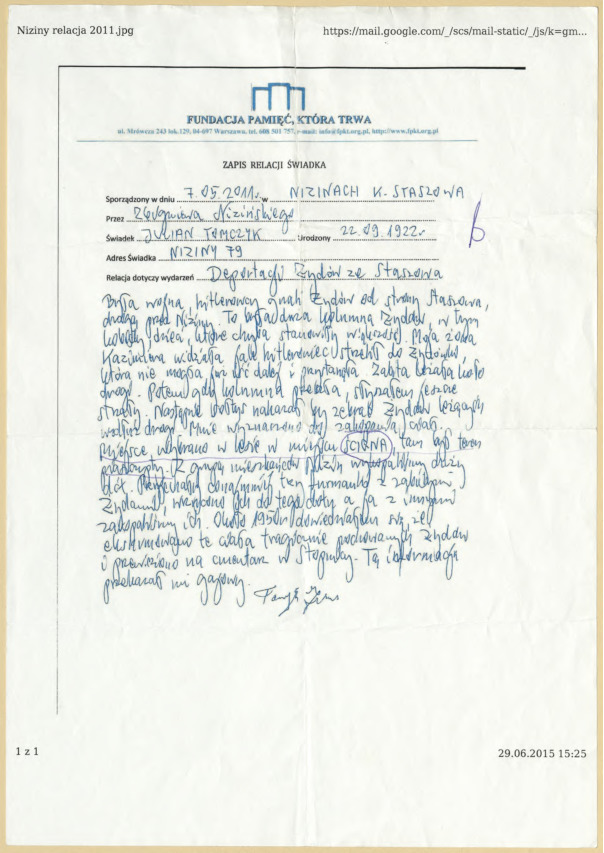 Niziny relacja 2011.jpg
https://mail.google.com/_/scs/mail-static/_/js/k=gm...
FUNDACJA PAMIĘĆ, KTÓRA TRWA
ul. Mrówcza 243 lok.129, 04-697 Warszawa, tel. 608 501 757, e-mail: info@fpkt.org.pl, http://www.fpkt.org.pl
ZAPIS RELACJI ŚWIADKA
Sporządzony w dniu 7.05.2011r. w NIZINACH K. STASZOWA
Przez Zbigniewa Nizińskiego
Świadek JULIAN TOMCZYK Urodzony 22.09.1922r
Adres Świadka NIZINY 79
Relacja dotyczy wydarzeń Deportacji Żydów ze Staszowa
Była wojna, hitlerowcy gnali Żydów od strony Staszowa,
drogą przed Niziny. To była duża kolumna Żydów, w tym
kobiety, dzieci, które chyba stanowiły większość. Moja żona
Kazimiera widziała jak hitlerowiec strzelił do Żydówki,
która nie mogła już iść dalej i Zabita leżała koło
drogi. Potem gdy kolumna przeszła, słyszałem jeszcze
strzały. Następnie sołtys nakazał by zebrać Żydów leżących
wzdłuż drogi. Mnie wyznaczono do zakopania ciał.
Miejsce wybrano w lesie w miejscu ŚCIANA, tam był teren
Z grupą mieszkańców Nizin wykopaliśmy duży
dół. Przyjechały co najmniej trzy furmanki z zabitymi
Żydami, wrzucono ich do tego dołu a ja z innymi
zakopaliśmy ich. Około 1950r dowiedziałem się, że
ekshumowano te ciała tragicznie pochowanych Żydów
i przewieziono na cmentarz w Stopnicy. Tę informację
przekazał mi gajowy.
1 z 1
29.06.2015 15:25